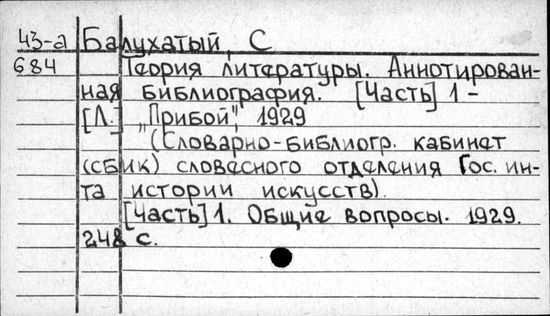 43-а Балухатый, С
684 Теория литературы. Аннотирован-
ная библиография. [Часть] 1 -
[Л.] „Прибой", 1929
(Словарно-библиогр. кабинет
(сбик) словесного отделения Гос. ин-
та истории искусств).
[Часть] 1. Общие вопросы. 1929.
248 с.